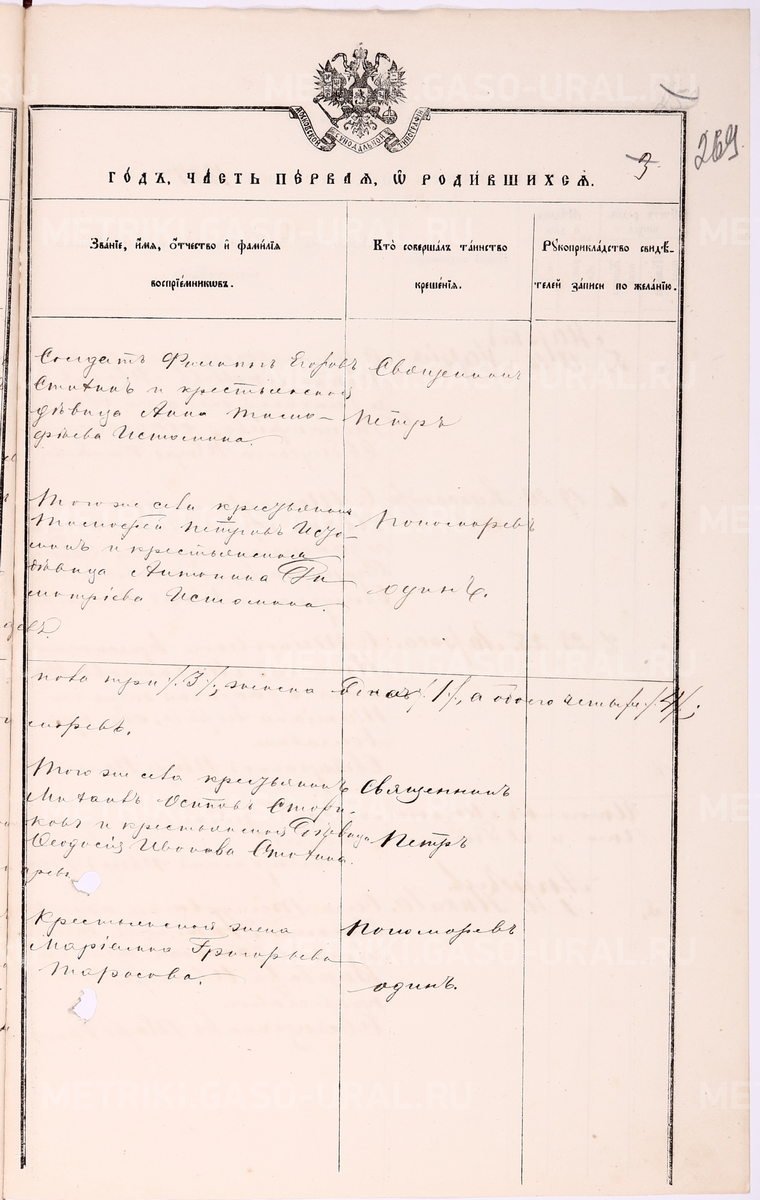 МОСКОВСКОЙ СѴНОДАЛЬНОЙ ТИПОГРАФІИ
3
269
ГО́ДЪ, ЧА́СТЬ ПЕ́РВАѦ, Ѽ РОДИ́ВШИХСѦ.
Зва́нїе, и҆́мѧ, о҆́тчество и҆ фами́лїѧ
воспрїе́мникѡвъ.
Кто̀ соверша́лъ та́инство
креще́нїѧ.
Рꙋкоприкла́дство свидѣ́-
телей за́писи по жела́нїю.
Солдатъ Филиппъ Егоровъ
и крестьянская
дѣвица Анна Тимо-
фѣева Истомина.
Священникъ
Петръ
Того же села крестьянинъ
Тимофей Петровъ Исто-
минъ и крестьянская
дѣвица Антонина Ди-
митріева Истомина.
Пономаревъ
одинъ.
пола три /3/, женска одна /1/, а обоего четыре /4/;
маревъ.
Того же села крестьянинъ
Осиповъ
и крестьянская дѣвица
Ѳеодосія Иванова
Священникъ
Петръ
Крестьянская жена
Григорьева
Тарасова.
Пономаревъ
одинъ.
METRIKI.GASO-URAL.RU